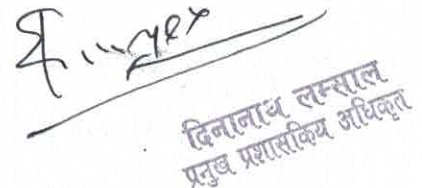 दिनानाथ लम्साल
प्रमुख प्रशासकिय अधिकृत